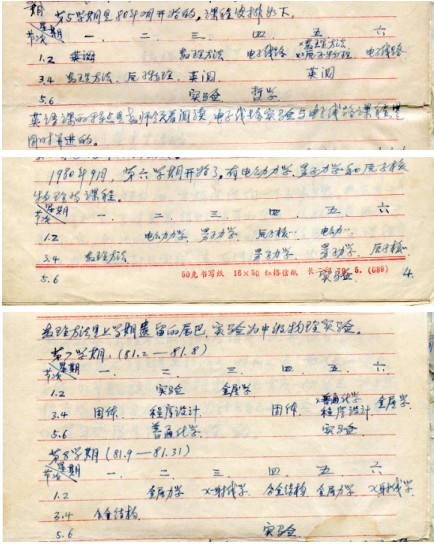 第5学期是80年2月开始的，课程安排如下。
星期 一. 二. 三. 四. 五. 六
节次
1.2 英阅 数理方法 电子线路 x数理方法 x原子物理. 电子线路
3.4 数理方法. 原子物理. 英阅 英阅
5.6 实验 哲学
英语课的特点是老师领着阅读，电子线路实验与电子线路课程是
同时进的。
1980年9月，第六学期开始了，有电动力学，量子力学和原子核
物理等课程。
星期 一. 二. 三. 四. 五. 六
节次
1.2 电动力学. 量子力学 原子核… 电动力…
3.4 数理方法 量子力学 量子力学. 原子核…
5.6 实验
50克书写纸 16×50 红格信纸 5. (689) 4.
数理方法是上学期遗留的尾巴，实验为中级物理实验。
第7学期. (81.2—81.8)
星期 一. 二. 三 四. 五. 六
节次
1.2 实验 金属学
3.4 固体. 程序设计 固体. x普通化学 程序设计 金属学.
5.6 普通化学 实验
第8学期 (81.9—81.31)
星期 一. 二. 三 四. 五. 六
节次
1.2 金属力学 x-射线学. 合金结构. 金属力学 x射线学
3.4 合金结构.
5.6 实验